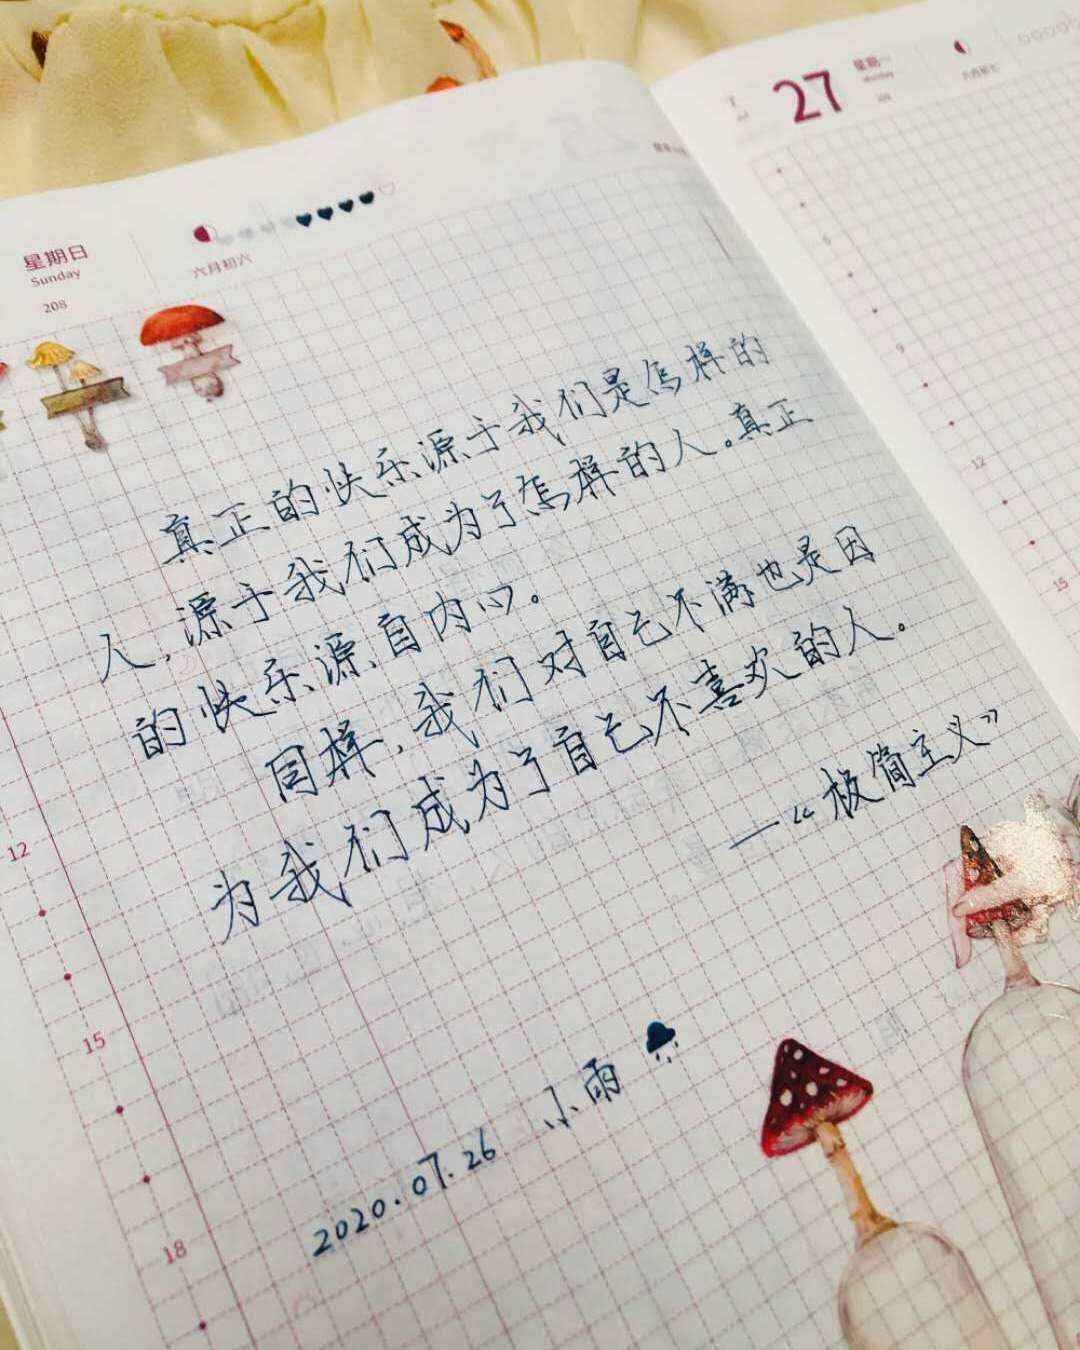 星期日
Sunday
208
六月初六
27
星期一
Monday
六月初七
真正的快乐源于我们是怎样的
人,源于我们成为了怎样的人。真正
的快乐源自内心。
同样,我们对自己不满也是因
为我们成为了自己不喜欢的人。
—《极简主义》
2020.07.26 小雨
12
15
18
9
12
15